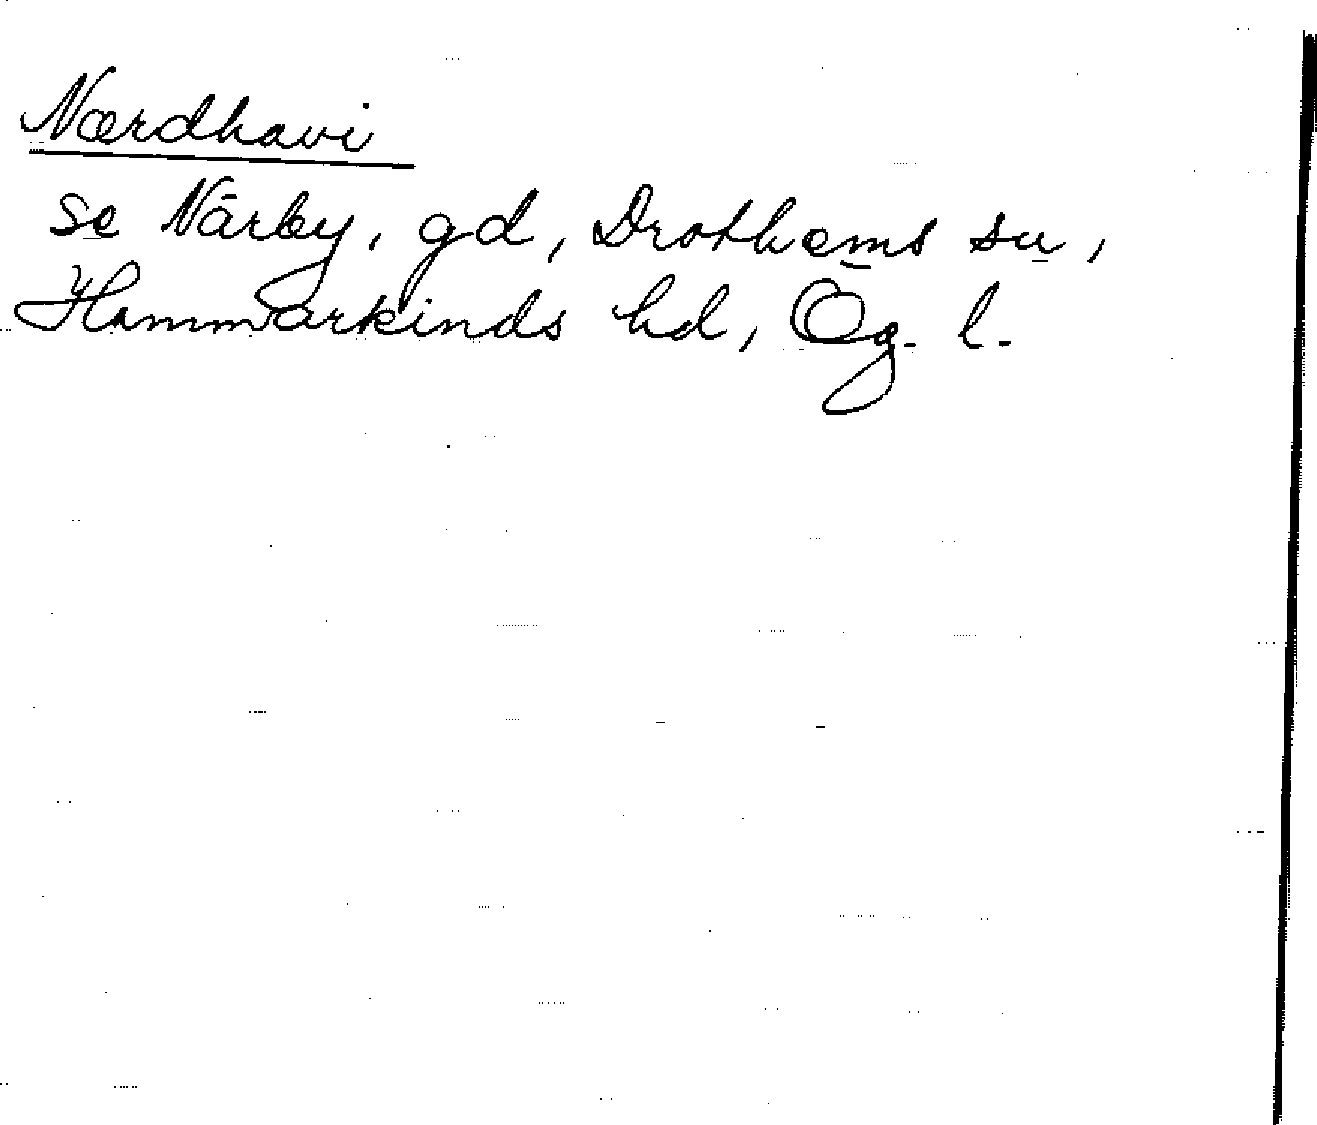 Nærdhavi
se Närby, gd, Drothems sn,
Hammarkinds hd, Ög. l.